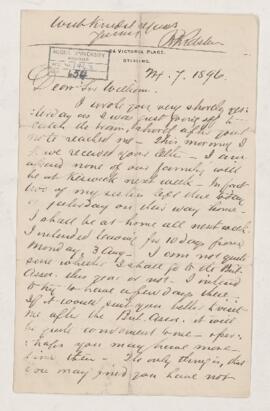 With kindest regards
Yours
24 VICTORIA PLACE,
STIRLING.
McGILL UNIVERSITY
7. 1896.
Dear Sir William.
I wrote you very shortly yes-
terday as I was just going off to
catch the train, shortly after your
note reached me. This morning I
received your letter. I am
afraid none of our family will
be at Keswick next week. In fact
two of my sisters left there today
or yesterday on their way home.
I shall be at home all next week.
I intended leaving for 10 days from
Monday, 3 Aug. I am not quite
sure whether I shall go to the Brit.
Assn. this year or not. I intend
to try to have a few days there.
If it would suit you better to visit
me after the Brit. Assn. it will
be quite convenient to me & per-
haps you may have more
time then. The only thing is, that
you may find you have not